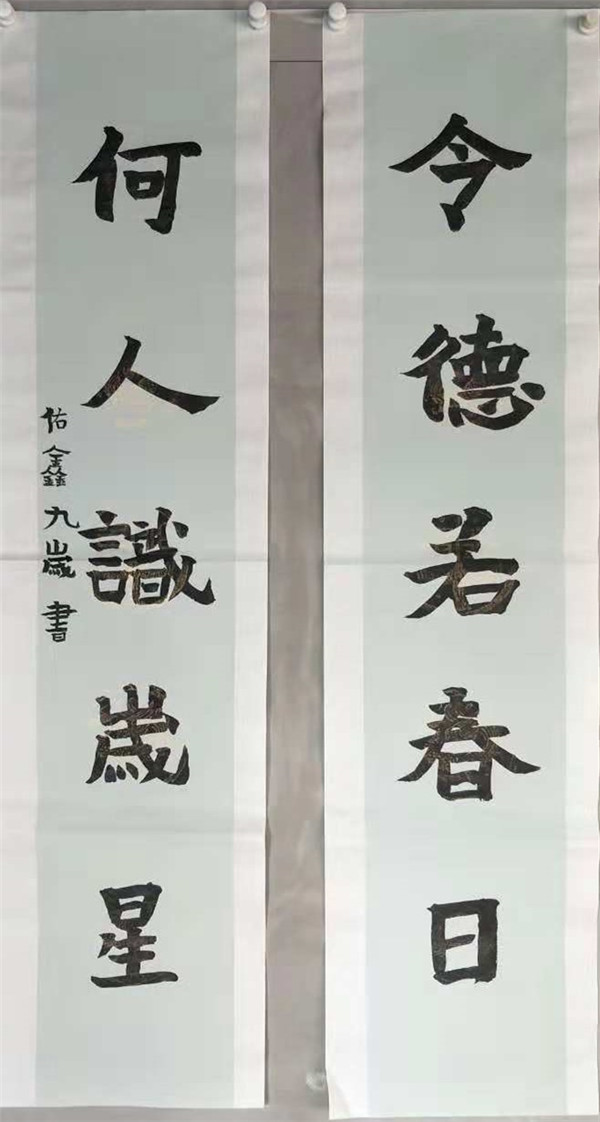 令德若春日
何人識歲星
佑鑫九歲書